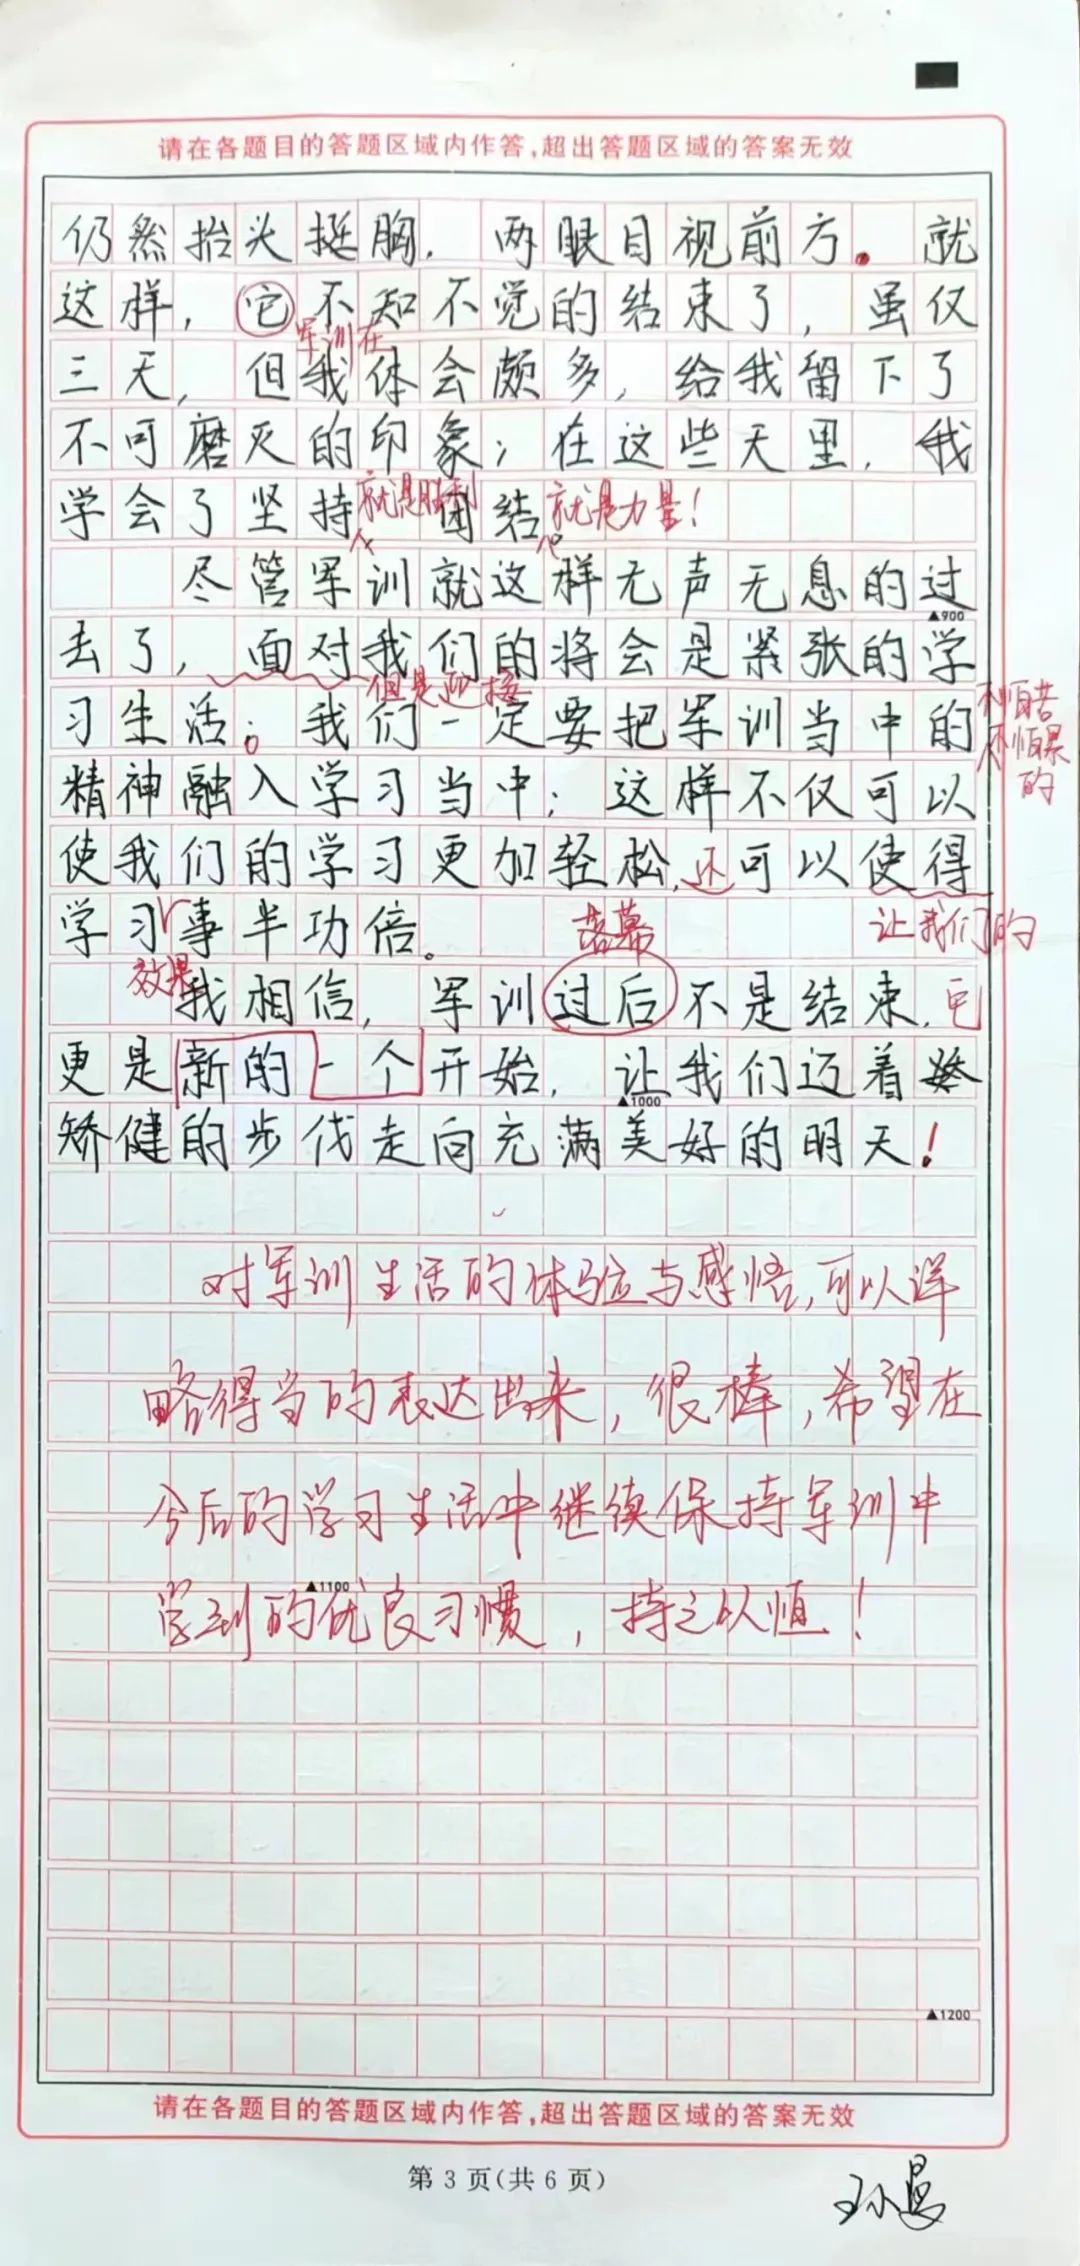 请在各题目的答题区域内作答,超出答题区域的答案无效
仍然抬头挺胸，两眼目视前方。就
这样，它不知不觉的结束了，虽仅
军训在
三天，但我体会颇多，给我留下了
不可磨灭的印象；在这些天里，我
学会了坚持就是胜利团结就是力量！
尽管军训就这样无声无息的过
▲900
去了，面对我们的将会是紧张的学
但是迎接
习生活。我们一定要把军训当中的
不怕苦
不怕累
的
精神融入学习当中；这样不仅可以
使我们的学习更加轻松，还可以使得
让我们的
学习事半功倍。
效果
落幕
我相信，军训过后不是结束，它
更是新的一个开始，让我们迈着
▲1000
矫健的步伐走向充满美好的明天！
对军训生活的体验与感悟，可以详
略得当的表达出来，很棒，希望在
今后的学习生活中继续保持军训中
▲1100
学到的优良习惯，持之以恒！
▲1200
请在各题目的答题区域内作答,超出答题区域的答案无效
第 3 页(共 6 页)